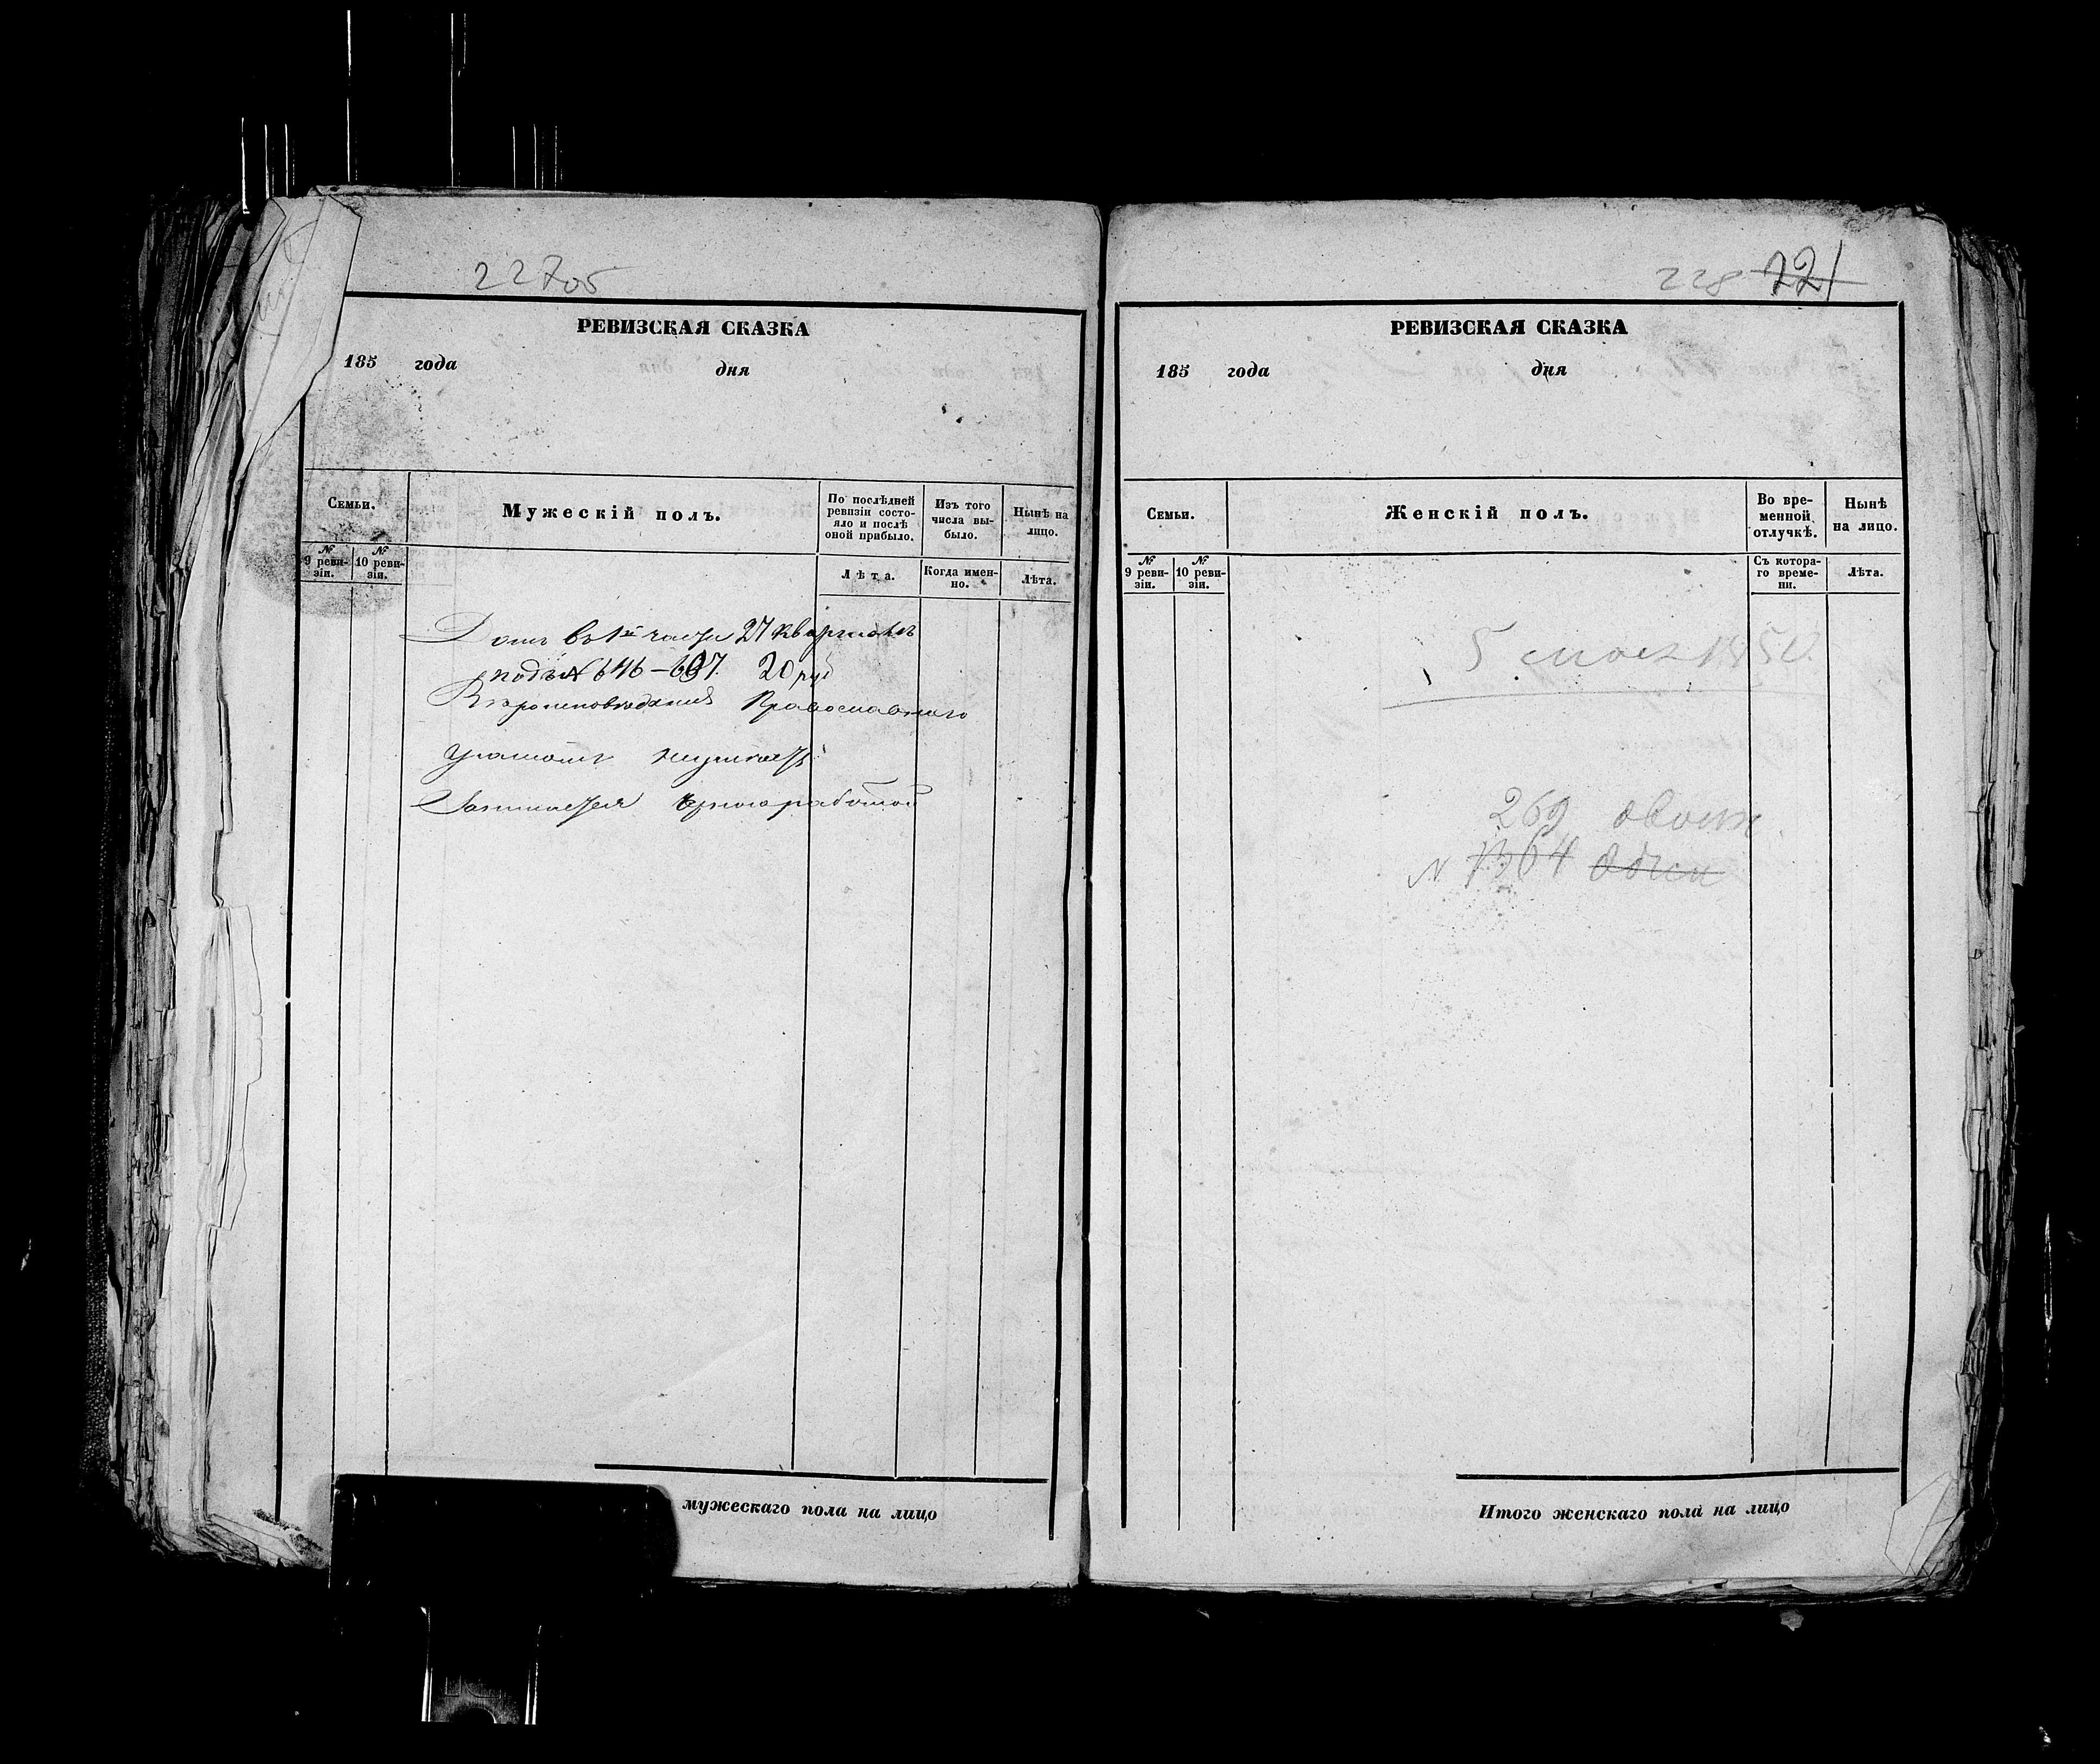 227об
РЕВИЗСКАЯ СКАЗКА
185 года дня
Семьи.
Мужескій полъ.
По послѣдней ревизіи состо-
яло и послѣ оной прибыло.
Изъ того числа вы-
было.
Нынѣ на лицо.
№ 9 реви-
зіи.
№ 10 реви-
зіи.
Лѣта.
Когда имен-
но.
Лѣта.
Домъ въ 1й части 27 квартала
подъ № 646 – 607. 20 руб
Вѣроисповеданія Православнаго
Грамотѣ неумѣетъ
Занимается чрноработой
мужескаго пола на лицо
228 221
РЕВИЗСКАЯ СКАЗКА
185 года дня
Семьи.
Женскій полъ.
Во вре-
менной отлучкѣ.
Нынѣ на лицо.
№ 9 реви-
зіи.
№ 10 реви-
зіи.
Съ котора-
го време-
ни.
Лѣта.
5 мая 1850.
269
№ 1364
Итого женскаго пола на лицо